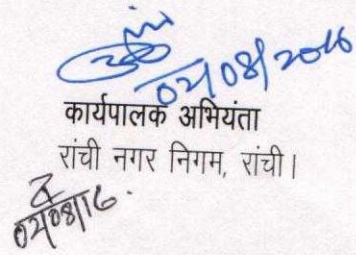 02/08/2016
कार्यपालक अभियंता
रांची नगर निगम, रांची।
02/08/16.